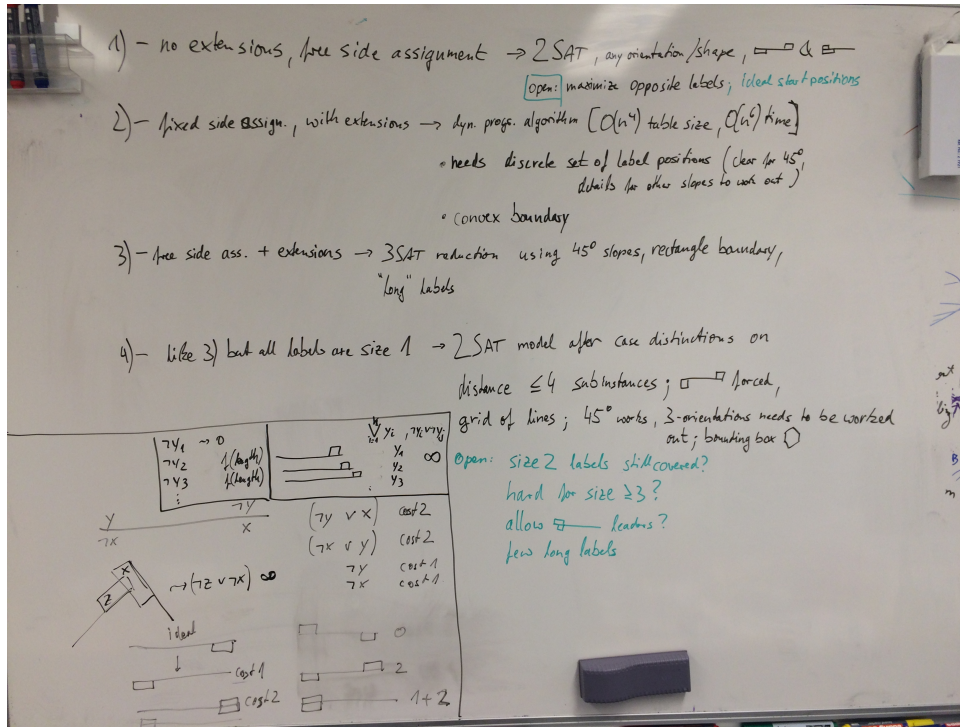 1) - no extensions, free side assignment → 2SAT, any orientation/shape, &
open: maximize opposite labels; ideal start positions
2) - fixed side assign., with extensions → dyn. progr. algorithm [O(n⁴) table size, O(n⁶) time]
• needs discrete set of label positions (clear for 45°,
details for other slopes to work out)
• convex boundary
3) - free side ass. + extensions → 3SAT reduction using 45° slopes, rectangle boundary,
"long" labels
4) - like 3) but all labels are size 1 → 2SAT model after case distinctions on
distance ≤4 subinstances; forced,
grid of lines; 45° works, 3-orientations needs to be worked
out; bounding box
Open: size 2 labels still covered?
hard for size ≥3?
allow leaders?
few long labels
¬y₁ → 0
¬y₂ f(length)
¬y₃ f(length)
⋮
yᵢ, ¬yᵢ∨¬yⱼ
y₁
y₂ ∞
y₃
y ¬y
¬x x
(¬y ∨ x) cost 2
(¬x ∨ y) cost 2
¬y cost 1
¬x cost 1
x
z
→ (¬z ∨ ¬x) ∞
ideal
↓
cost 1
cost 2
0
2
1+2